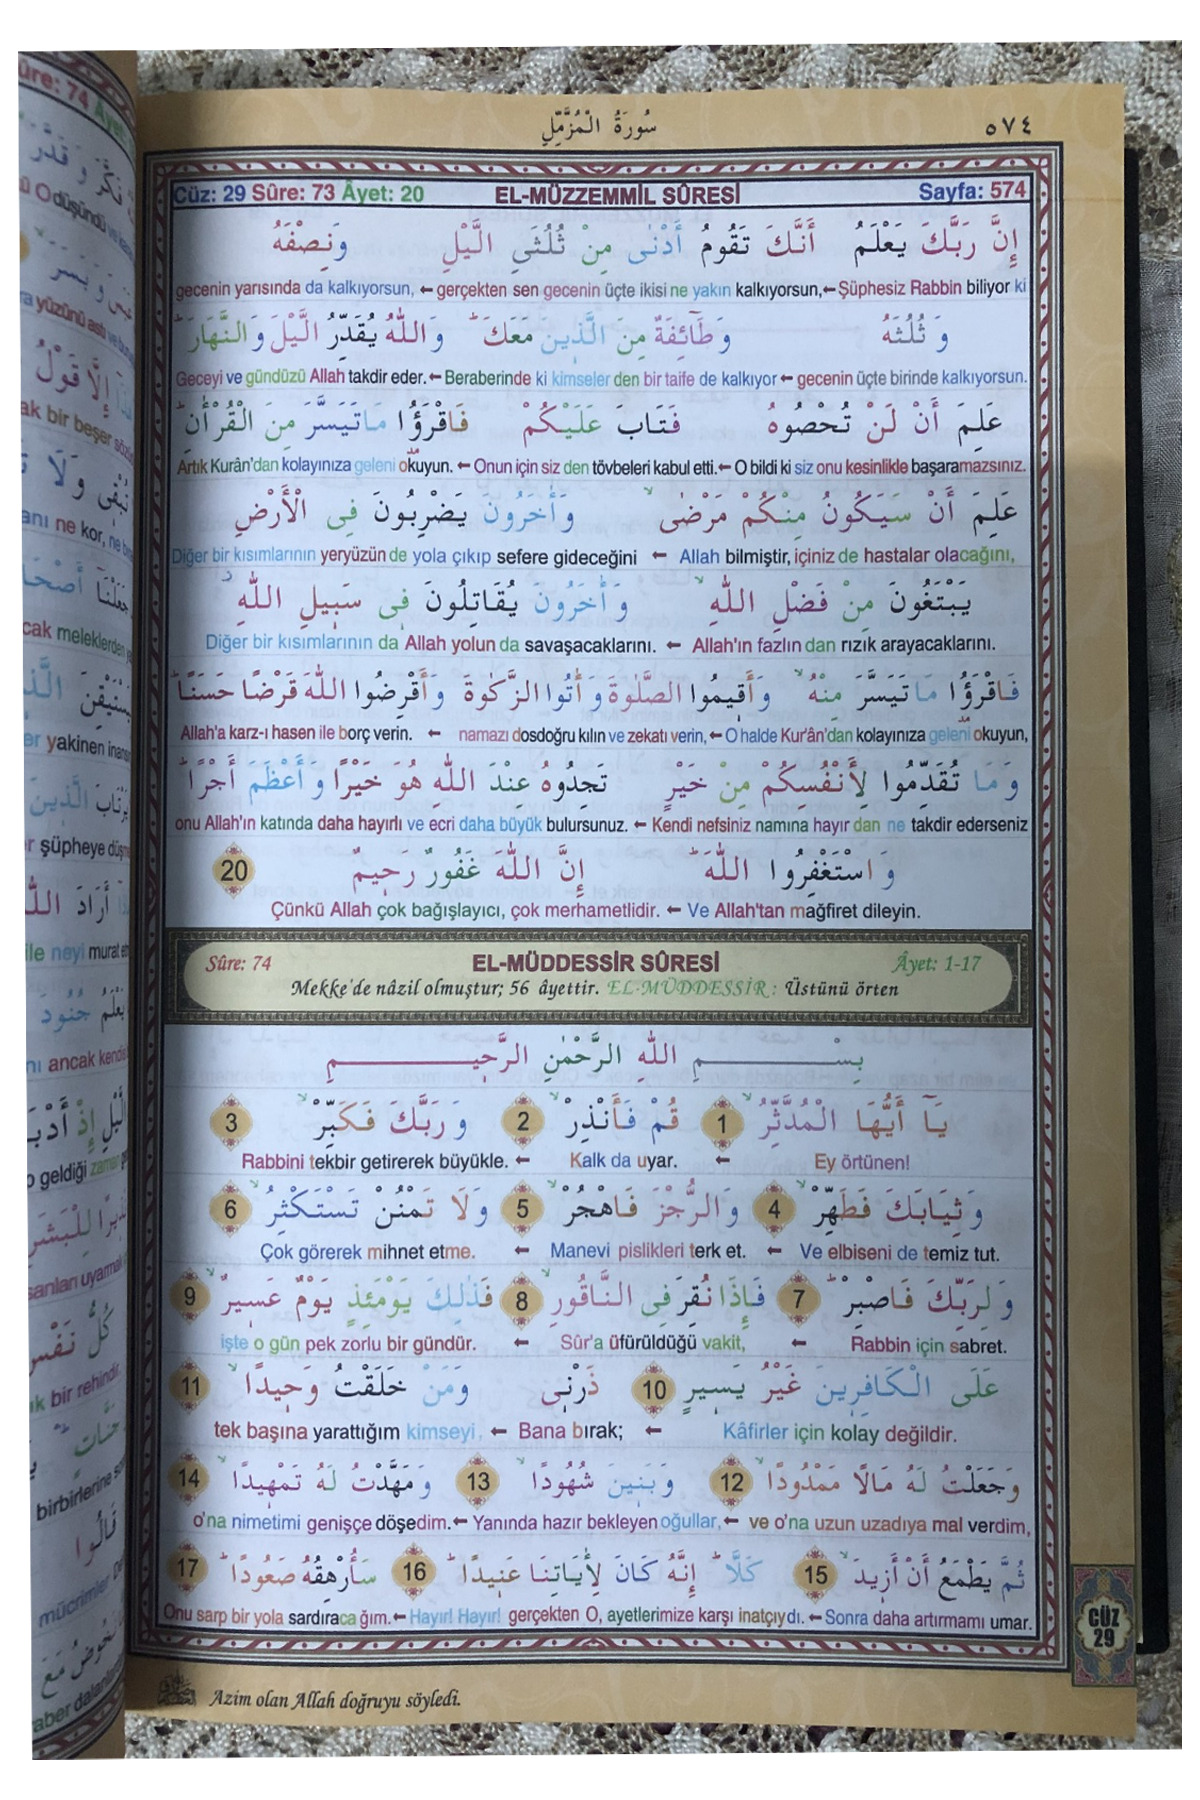 سُورَةُ الْمُزَّمِّلِ ٥٧٤
Cüz: 29 Sûre: 73 Âyet: 20 EL-MÜZZEMMİL SÛRESİ Sayfa: 574
إِنَّ رَبَّكَ يَعْلَمُ أَنَّكَ تَقُومُ أَدْنٰى مِنْ ثُلُثَيِ الَّيْلِ وَنِصْفَهُ
gecenin yarısında da kalkıyorsun, ← gerçekten sen gecenin üçte ikisi ne yakın kalkıyorsun,← Şüphesiz Rabbin biliyor ki
وَثُلُثَهُ وَطَٓائِفَةٌ مِنَ الَّذِينَ مَعَكَ ۜ وَاللّٰهُ يُقَدِّرُ الَّيْلَ وَالنَّهَارَ ۜ
Geceyi ve gündüzü Allah takdir eder.← Beraberinde ki kimseler den bir taife de kalkıyor ← gecenin üçte birinde kalkıyorsun.
عَلِمَ أَنْ لَنْ تُحْصُوهُ فَتَابَ عَلَيْكُمْ فَاقْرَؤُا مَا تَيَسَّرَ مِنَ الْقُرْاٰنِ ۜ
Artık Kurân'dan kolayınıza geleni okuyun. ← Onun için siz den tövbeleri kabul etti.← O bildi ki siz onu kesinlikle başaramazsınız.
عَلِمَ أَنْ سَيَكُونُ مِنْكُمْ مَرْضٰى ۙ وَاٰخَرُونَ يَضْرِبُونَ فِى الْأَرْضِ
Diğer bir kısımlarının yeryüzün de yola çıkıp sefere gideceğini ← Allah bilmiştir, içiniz de hastalar olacağını,
يَبْتَغُونَ مِنْ فَضْلِ اللّٰهِ ۙ وَاٰخَرُونَ يُقَاتِلُونَ فِى سَبِيلِ اللّٰهِ ۘ
Diğer bir kısımlarının da Allah yolun da savaşacaklarını. ← Allah'ın fazlın dan rızık arayacaklarını.
فَاقْرَؤُا مَا تَيَسَّرَ مِنْهُ ۙ وَأَقِيمُوا الصَّلٰوةَ وَاٰتُوا الزَّكٰوةَ وَأَقْرِضُوا اللّٰهَ قَرْضًا حَسَنًا ۜ
Allah'a karz-ı hasen ile borç verin. ← namazı dosdoğru kılın ve zekatı verin,← O halde Kur'ân'dan kolayınıza geleni okuyun,
وَمَا تُقَدِّمُوا لِأَنْفُسِكُمْ مِنْ خَيْرٍ تَجِدُوهُ عِنْدَ اللّٰهِ هُوَ خَيْرًا وَأَعْظَمَ أَجْرًا ۜ
onu Allah'ın katında daha hayırlı ve ecri daha büyük bulursunuz. ← Kendi nefsiniz namına hayır dan ne takdir ederseniz
وَاسْتَغْفِرُوا اللّٰهَ ۜ إِنَّ اللّٰهَ غَفُورٌ رَحِيمٌ 20
Çünkü Allah çok bağışlayıcı, çok merhametlidir. ← Ve Allah'tan mağfiret dileyin.
Sûre: 74 EL-MÜDDESSİR SÛRESİ Âyet: 1-17
Mekke'de nâzil olmuştur; 56 âyettir. EL-MÜDDESSİR : Üstünü örten
بِسْمِ اللّٰهِ الرَّحْمٰنِ الرَّحِيمِ
يَٓا أَيُّهَا الْمُدَّثِّرُ ۙ 1 قُمْ فَأَنْذِرْ ۙ 2 وَرَبَّكَ فَكَبِّرْ ۙ 3
Rabbini tekbir getirerek büyükle. ← Kalk da uyar. ← Ey örtünen!
وَثِيَابَكَ فَطَهِّرْ ۙ 4 وَالرُّجْزَ فَاهْجُرْ ۙ 5 وَلَا تَمْنُنْ تَسْتَكْثِرُ ۙ 6
Çok görerek mihnet etme. ← Manevi pislikleri terk et. ← Ve elbiseni de temiz tut.
وَلِرَبِّكَ فَاصْبِرْ ۜ 7 فَإِذَا نُقِرَ فِى النَّاقُورِ ۙ 8 فَذٰلِكَ يَوْمَئِذٍ يَوْمٌ عَسِيرٌ ۙ 9
işte o gün pek zorlu bir gündür. ← Sûr'a üfürüldüğü vakit, ← Rabbin için sabret.
عَلَى الْكَافِرِينَ غَيْرُ يَسِيرٍ 10 ذَرْنِى وَمَنْ خَلَقْتُ وَحِيدًا ۙ 11
tek başına yarattığım kimseyi, ← Bana bırak; ← Kâfirler için kolay değildir.
وَجَعَلْتُ لَهُ مَالًا مَمْدُودًا ۙ 12 وَبَنِينَ شُهُودًا ۙ 13 وَمَهَّدْتُ لَهُ تَمْهِيدًا ۙ 14
o'na nimetimi genişçe döşedim.← Yanında hazır bekleyen oğullar,← ve o'na uzun uzadıya mal verdim,
ثُمَّ يَطْمَعُ أَنْ أَزِيدَ ۙ 15 كَلَّا ۜ إِنَّهُ كَانَ لِاٰيَاتِنَا عَنِيدًا ۜ 16 سَأُرْهِقُهُ صَعُودًا ۜ 17
Onu sarp bir yola sardıraca ğım.← Hayır! Hayır! gerçekten O, ayetlerimize karşı inatçıydı.← Sonra daha artırmamı umar.
CÜZ
29
Azim olan Allah doğruyu söyledi.